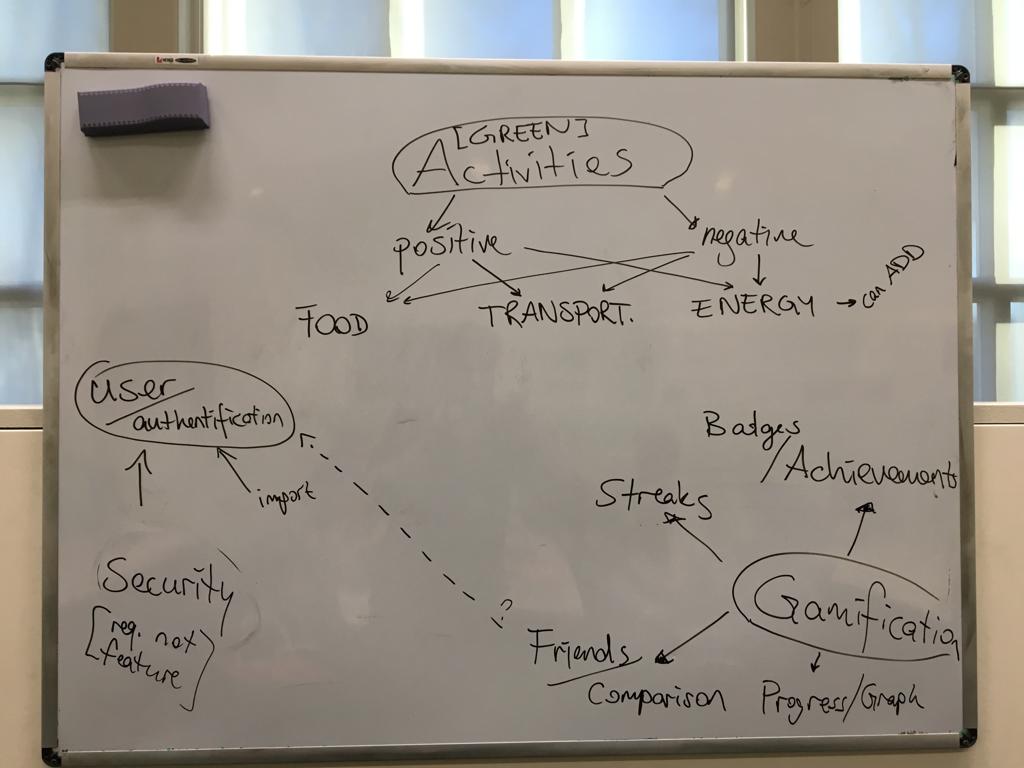 [GREEN]
Activities
positive
negative
FOOD
TRANSPORT.
ENERGY
can ADD
user
authentification
import
Security
[req. not
feature]
Badges
/Achievements
Streaks
Gamification
Friends
Comparison
Progress/Graph